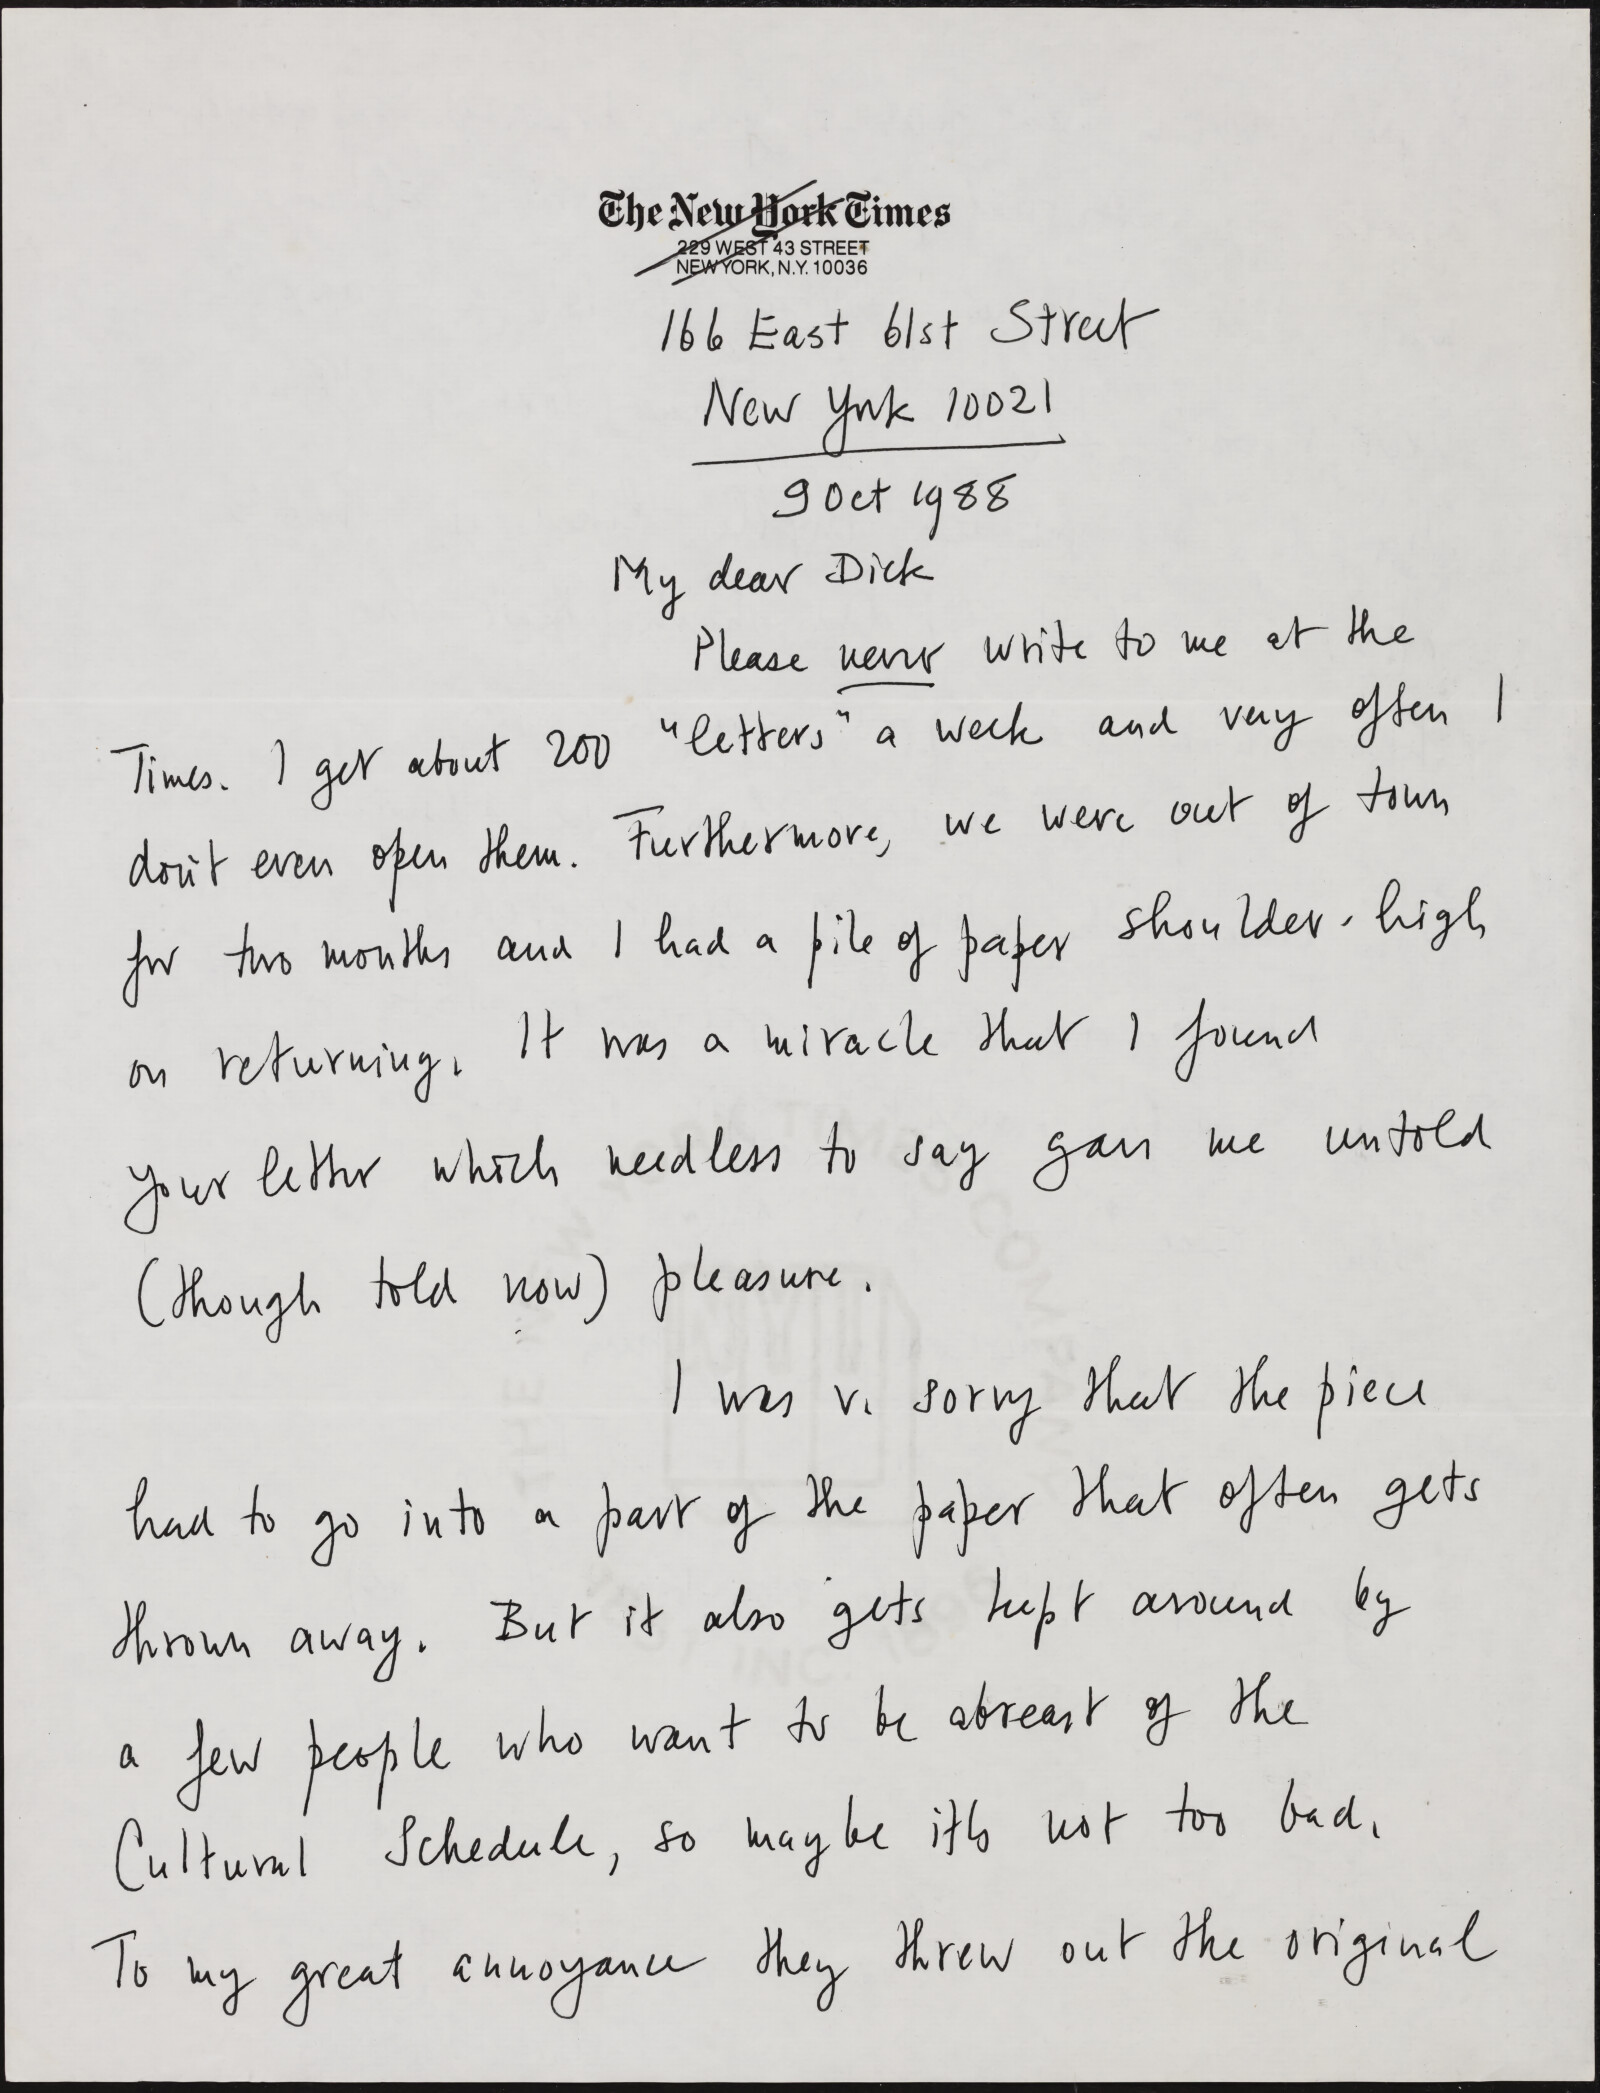 The New York Times
229 WEST 43 STREET
NEW YORK, N.Y. 10036
166 East 61st Street
New York 10021
9 Oct 1988
My dear Dick
Please never write to me at the
Times. I get about 200 "letters" a week and very often I
don't even open them. Furthermore, we were out of town
for two months and I had a pile of paper shoulder-high
on returning. It was a miracle that I found
your letter which needless to say gave me untold
(though told now) pleasure.
I was v. sorry that the piece
had to go into a part of the paper that often gets
thrown away. But it also gets kept around by
a few people who want to be abreast of the
Cultural Schedule, so maybe it's not too bad.
To my great annoyance they threw out the original